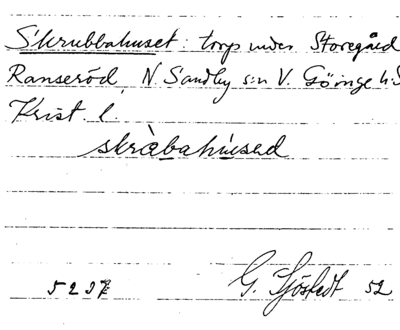 Skrubbahuset: torp under Storegård
Ranseröd, N. Sandby s:n V. Göinge h:
Krist. l.
skràbahúsed
G. Sjöstedt 52